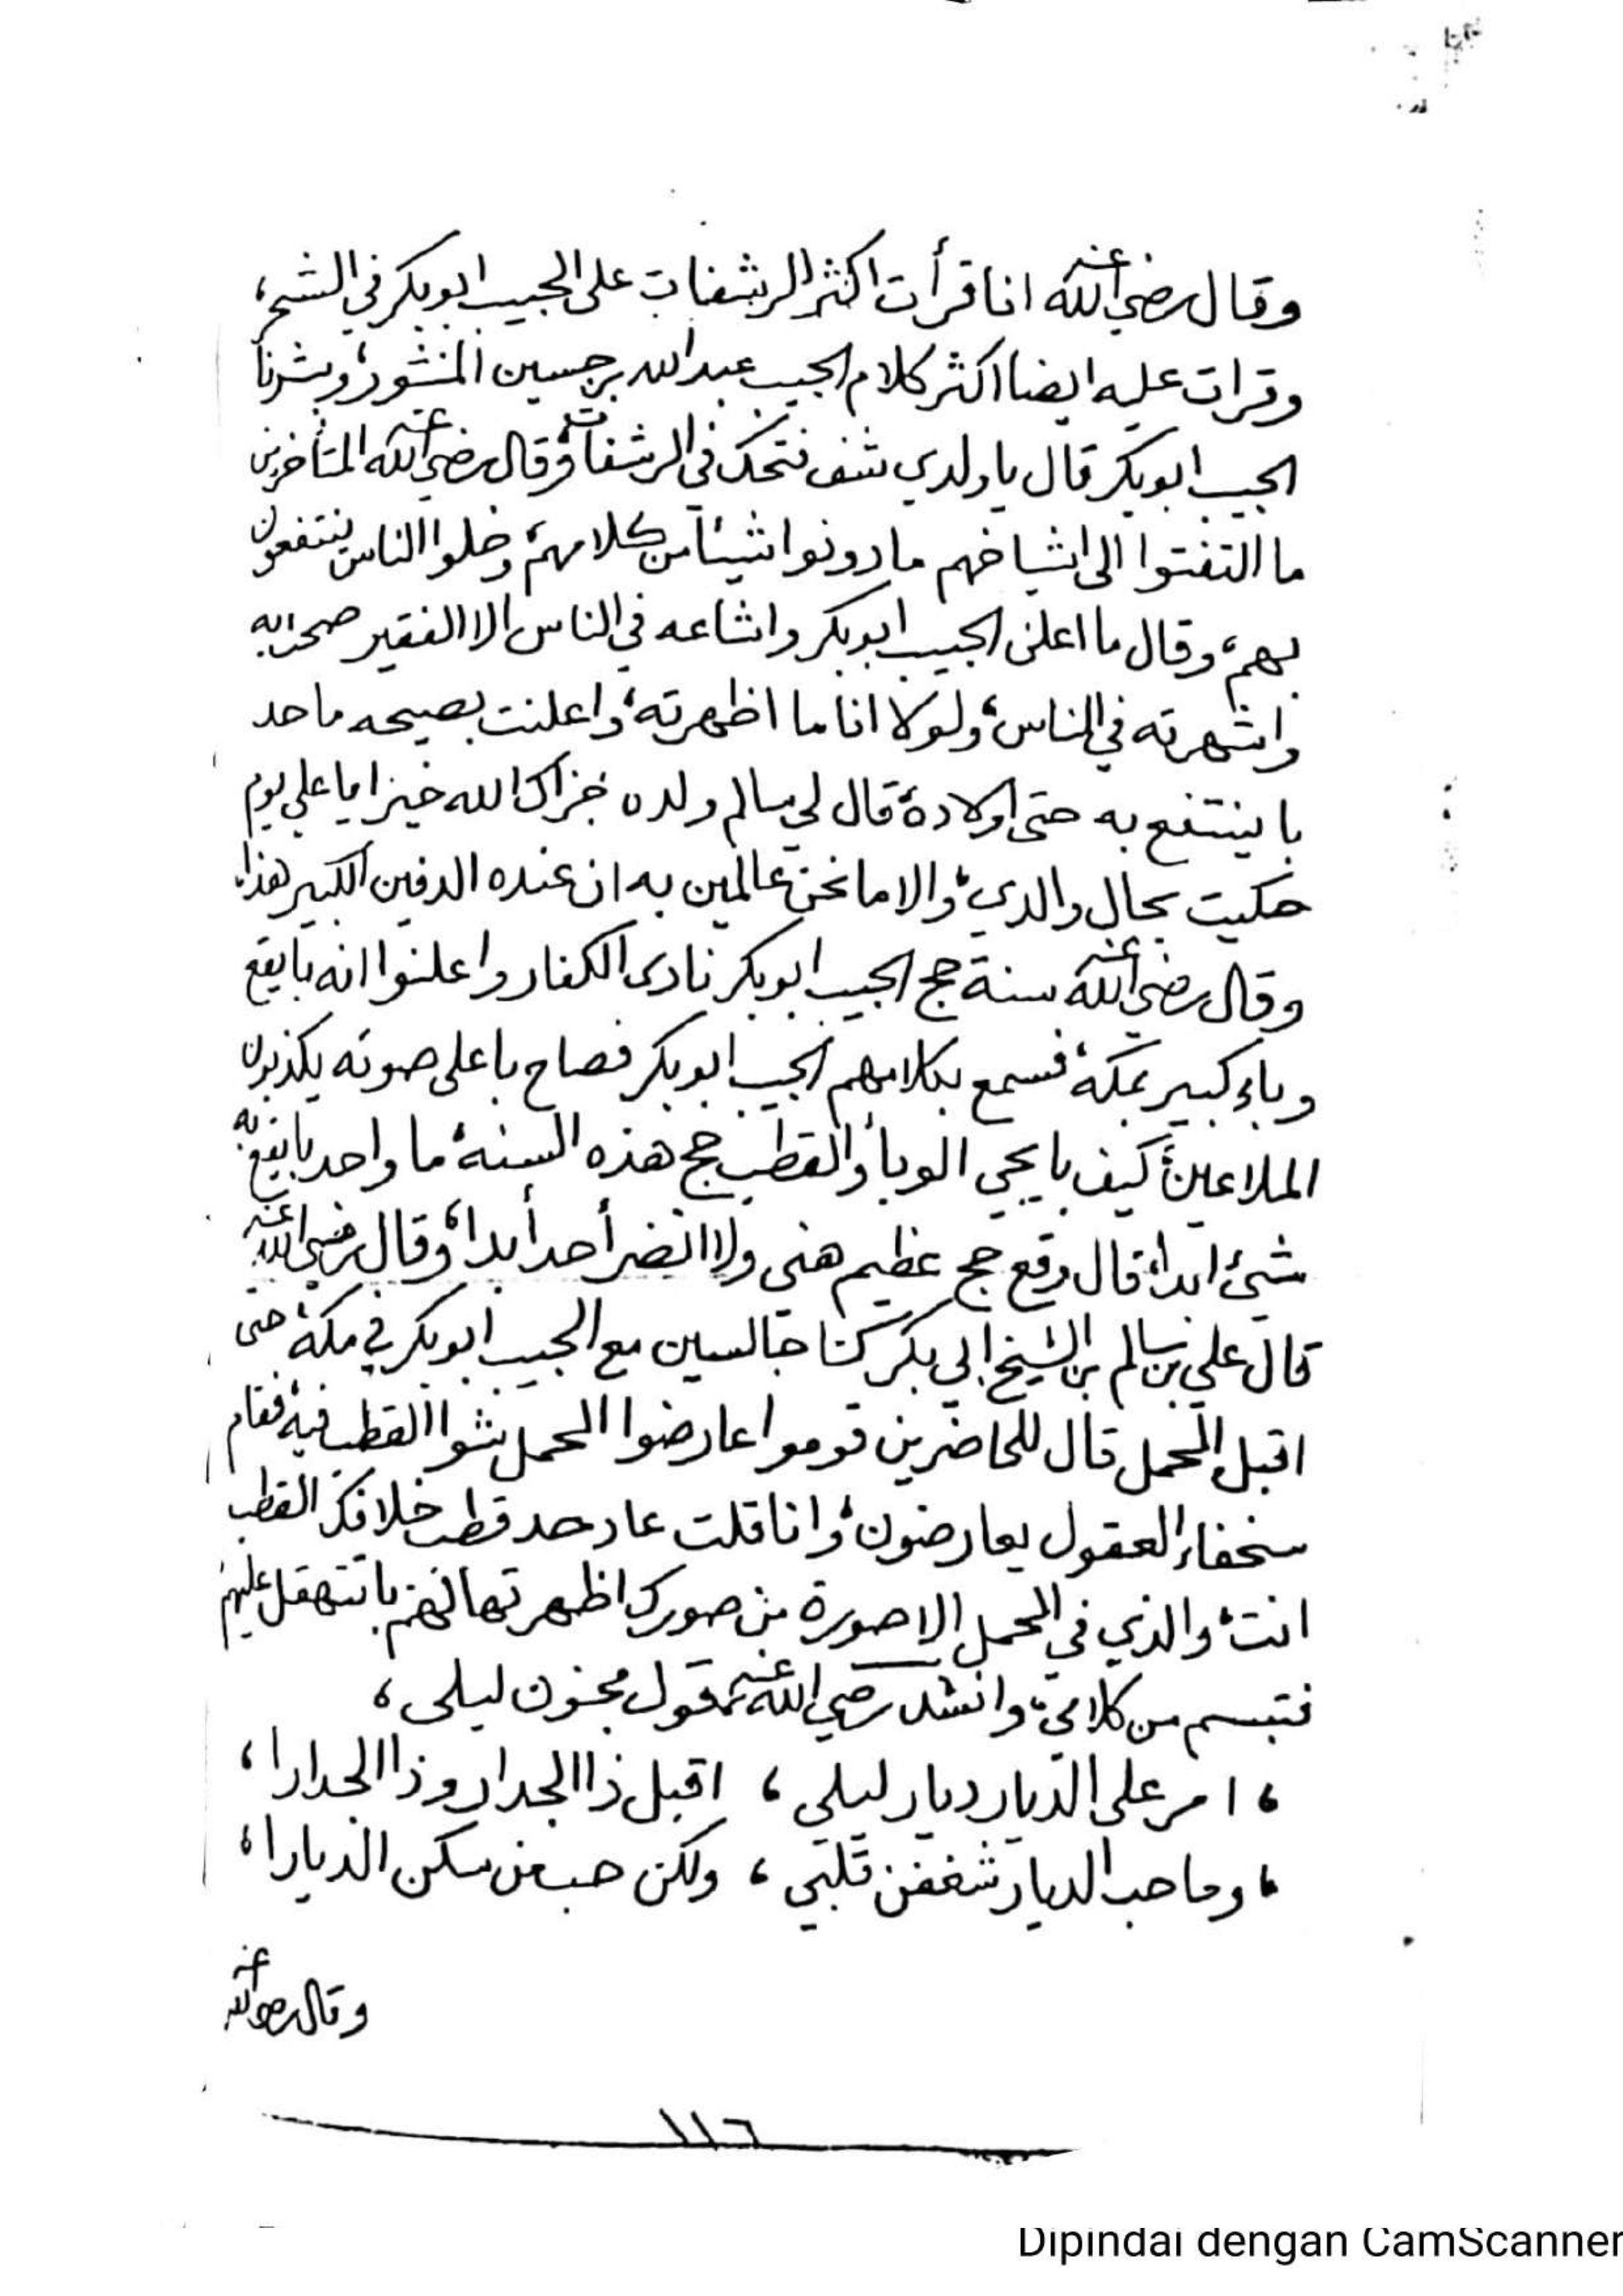 وقال رضي الله عنه انا قرأت اكثر الرشفات على الحبيب ابوبكر في الشحر،
وقرات عليه ايضا اكثر كلام الحبيب عبدالله بن حسين المنثور، وبشرنا
الحبيب ابوبكر قال يا ولدي شف فتحك في الرشفات، وقال رضي الله عنه المتأخرين
ما التفتوا الى اشياخهم ما دونوا شيئا من كلامهم، وخلوا الناس ينتفعون
بهم، وقال ما اعلن الحبيب ابوبكر واشاعه في الناس الا الفقير صحت به
واشهرته في الناس، ولولا انا ما اظهرته، واعلنت بصيحه ما حد
با ينتفع به حتى اولاده، قال لي سالم ولده جزاك الله خيرا يا علي يوم
حكيت بحال والدي، والا ما نحن عالمين به ان عنده الدفين الكبير هذا،
وقال رضي الله عنه سنة حج الحبيب ابوبكر نادى الكفار واعلنوا انه با يقع
وباء كبير بمكة، فسمع بكلامهم الحبيب ابوبكر فصاح باعلى صوته يكذبون
الملاعين، كيف با يجي الوبأ، والقطب حج هذه السنة، ما واحد با يقع به
شيئ ابدا، قال وقع حج عظيم هني ولا انضر أحد أبدا، وقال رضي الله عنه
قال علي بن سالم بن الشيخ ابي بكر كنا جالسين مع الحبيب ابوبكر في مكة، حتى
اقبل المحمل قال للحاضرين قوموا عارضوا المحمل شوا القطب فيه، فقام
سخفاء العقول يعارضون، وانا قلت عاد حد قطب خلافك القطب
انت، والذي في المحمل الا صورة من صورك اظهرتها لهم با تتهقل عليهم
فتبسم من كلامي، وانشد رضي الله عنه بقول مجنون ليلى،
، امر على الديار ديار ليلى ، اقبل ذا الجدار وذا الجدارا ،
، وما حب الديار شغفن قلبي ، ولكن حب من سكن الديارا ،
وقال رضي الله عنه
١١٦
Dipindai dengan CamScanner